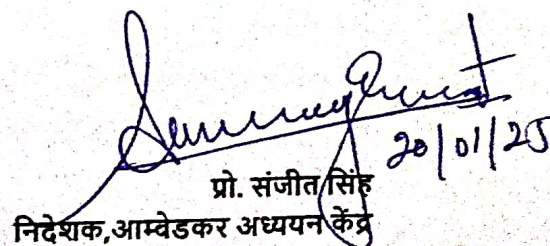 20/01/25
प्रो. संजीत सिंह
निदेशक,आम्वेडकर अध्ययन केंद्र